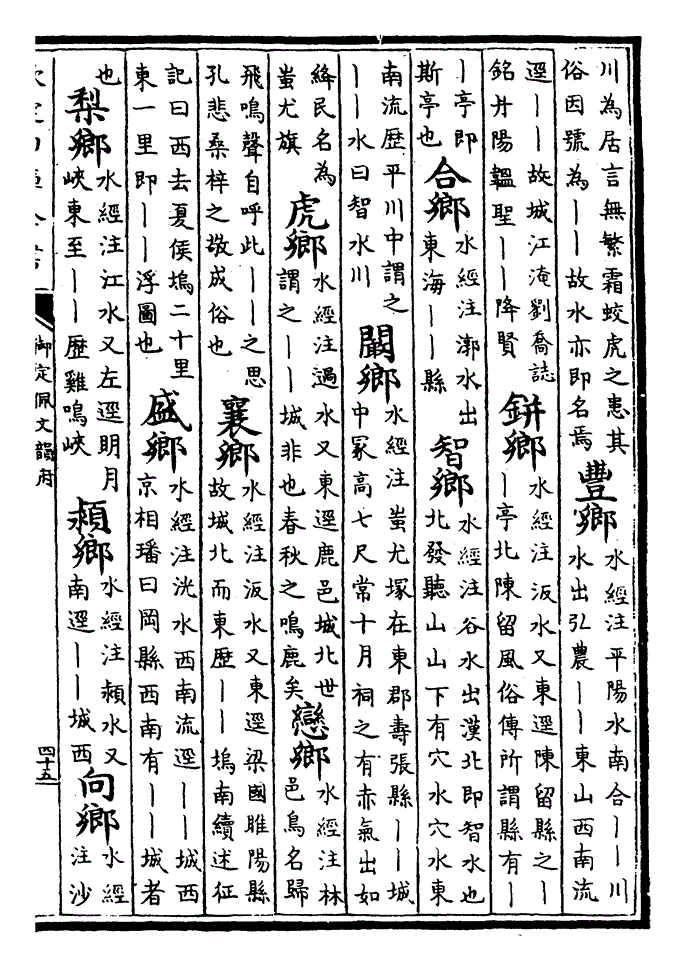 川為居言無繁霜蛟虎之患其
俗因號為丨丨故水亦即名焉
豐鄉
水經注平陽水南合丨丨川
水出弘農丨丨東山西南流
逕丨丨故城江淹劉喬誌
銘丹陽韞聖丨丨降賢
鉼鄉
水經注汳水又東逕陳留縣之丨
丨亭北陳留風俗傳所謂縣有丨
丨亭即
斯亭也
合鄉
水經注漷水出
東海丨丨縣
智鄉
水經注谷水出漢北即智水也
北發聽山山下有穴水穴水東
南流歴平川中謂之
丨丨水曰智水川
闞鄉
水經注蚩尤塚在東郡壽張縣丨丨城
中冡高七尺常十月祠之有赤氣出如
絳民名為
蚩尤旗
虎鄉
水經注過水又東逕鹿邑城北世
謂之丨丨城非也春秋之鳴鹿矣
戀鄉
水經注林
邑鳥名歸
飛鳴聲自呼此丨丨之思
孔悲桑梓之敬成俗也
襄鄉
水經注汳水又東逕梁國睢陽縣
故城北而東歴丨丨塢南續述征
記曰西去夏侯塢二十里
東一里即丨丨浮圖也
盛鄉
水經注洸水西南流逕丨丨城西
京相璠曰岡縣西南有丨丨城者
也
梨鄉
水經注江水又左逕明月
峽東至丨丨歴雞鳴峽
潁鄉
水經注潁水又
南逕丨丨城西
向鄉
水經
注沙
御定佩文韻府
四十五